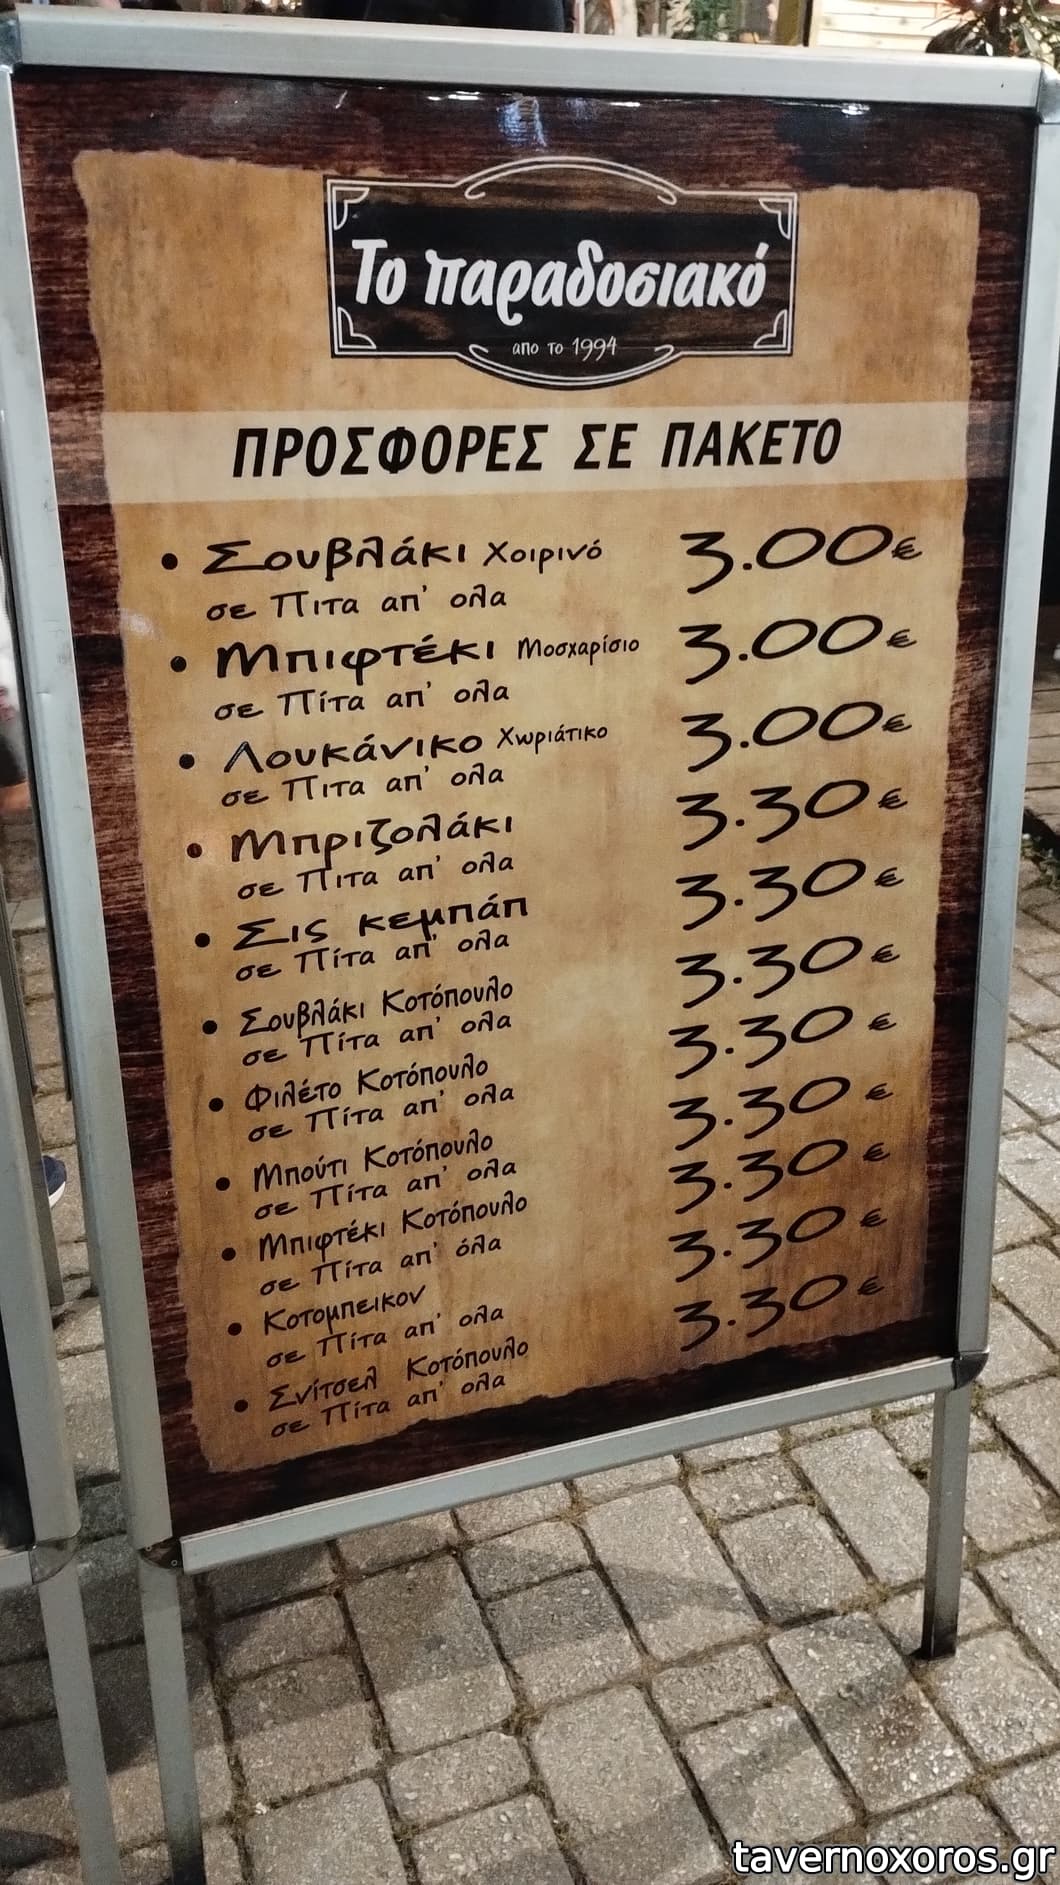 Το παραδοσιακό
απο το 1994
ΠΡΟΣΦΟΡΕΣ ΣΕ ΠΑΚΕΤΟ
• Σουβλάκι Χοιρινό 3.00€
σε Πιτα απ' ολα
• Μπιφτέκι Μοσχαρίσιο 3.00€
σε Πίτα απ' ολα
• Λουκάνικο Χωριάτικο 3.00€
σε Πιτα απ' ολα
• Μπριζολάκι 3.30€
σε Πιτα απ' ολα
• Σις κεμπάπ 3.30€
σε Πίτα απ' ολα
• Σουβλάκι Κοτόπουλο 3.30€
σε Πίτα απ' ολα
• Φιλέτο Κοτόπουλο 3.30€
σε Πίτα απ' ολα
• Μπούτι Κοτόπουλο 3.30€
σε Πίτα απ' ολα
• Μπιφτέκι Κοτόπουλο 3.30€
σε Πίτα απ' όλα
• Κοτομπεικον 3.30€
σε Πίτα απ' ολα
• Σνίτσελ Κοτόπουλο 3.30€
σε Πίτα απ' ολα
tavernoxoros.gr